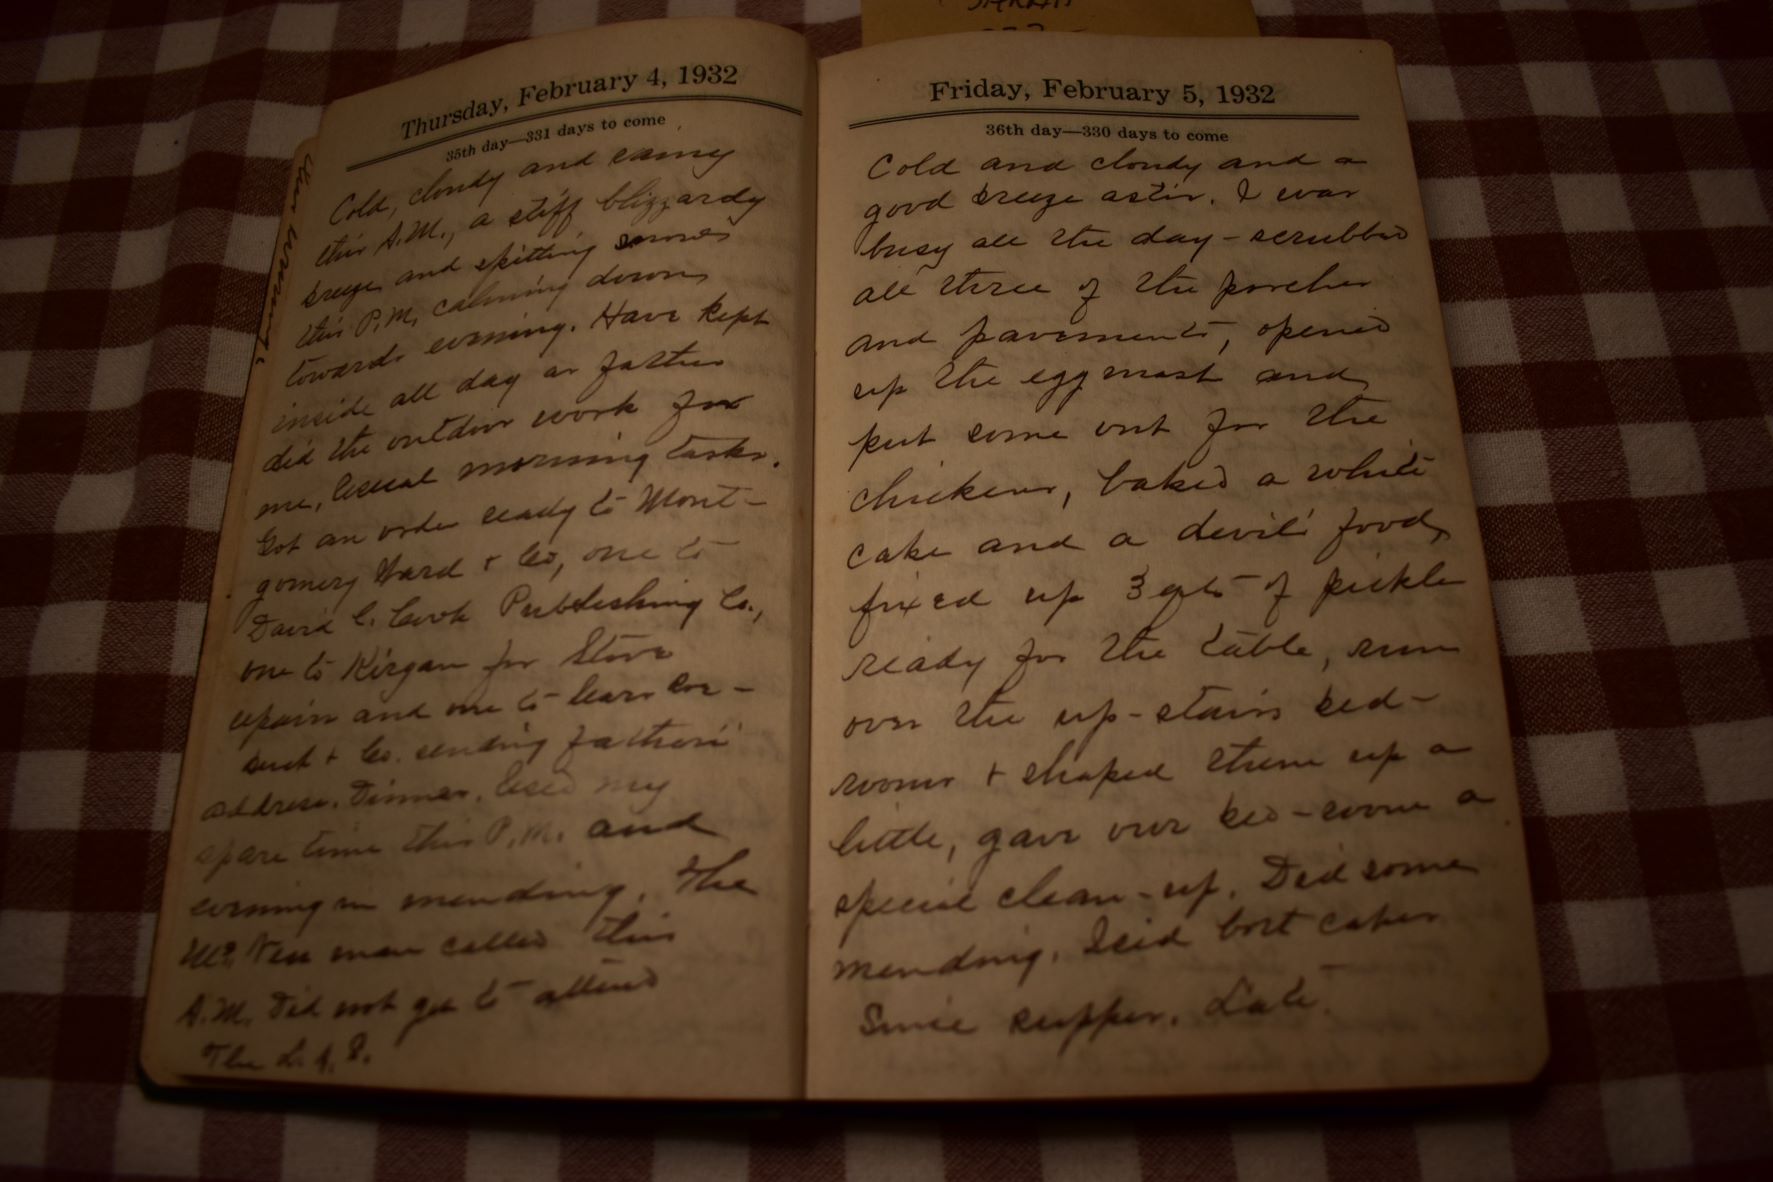 SARAH
Thursday, February 4, 1932
35th day—331 days to come
Cold, cloudy and rainy
this A.M., a stiff blizzardy
breeze and spitting snow
this P.M. calming down
towards evening. Have kept
inside all day as father
did the outdoor work for
me, Usual morning tasks.
Got an order ready to Mont-
gomery Ward + Co, one to
David C. Cook Publishing Co.,
one to Kirgan for Stove
repairs and one to Sears Roe-
buck + Co. sending father's
address. Dinner. Used my
spare time this P.M. and
evening in mending. The
man called this
A.M. Did not get to attend
The L. A. S.
this evening.
Friday, February 5, 1932
36th day—330 days to come
Cold and cloudy and a
good breeze astir. I was
busy all the day - scrubbed
all three of the porches
and pavements, opened
up the egg mash and
put some out for the
chickens, baked a white
cake and a devil's food,
fixed up 3 qts of pickle
ready for the table, run
over the up-stairs bed-
rooms + shaped them up a
little, gave our bed-room a
special clean-up. Did some
mending. Iced both cakes
Since supper. Late.